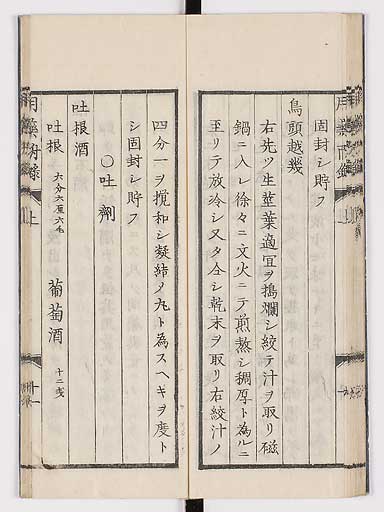 固封シ貯フ
烏頭越幾
右先ツ生莖葉適宜ヲ搗爛シ絞テ汁ヲ取リ磁
鍋ニ入レ徐々ニ文火ニテ煎熬シ稠厚ト為ルニ
至リテ放冷シ又タ仝シ乾末ヲ取リ右絞汁ノ
四分一ヲ攪和シ凝締ノ丸ト為スヘキヲ度ト
シ固封シ貯フ
〇吐劑
吐根酒
吐根 六分六厘六毛 葡萄酒 十二戔
上
十一